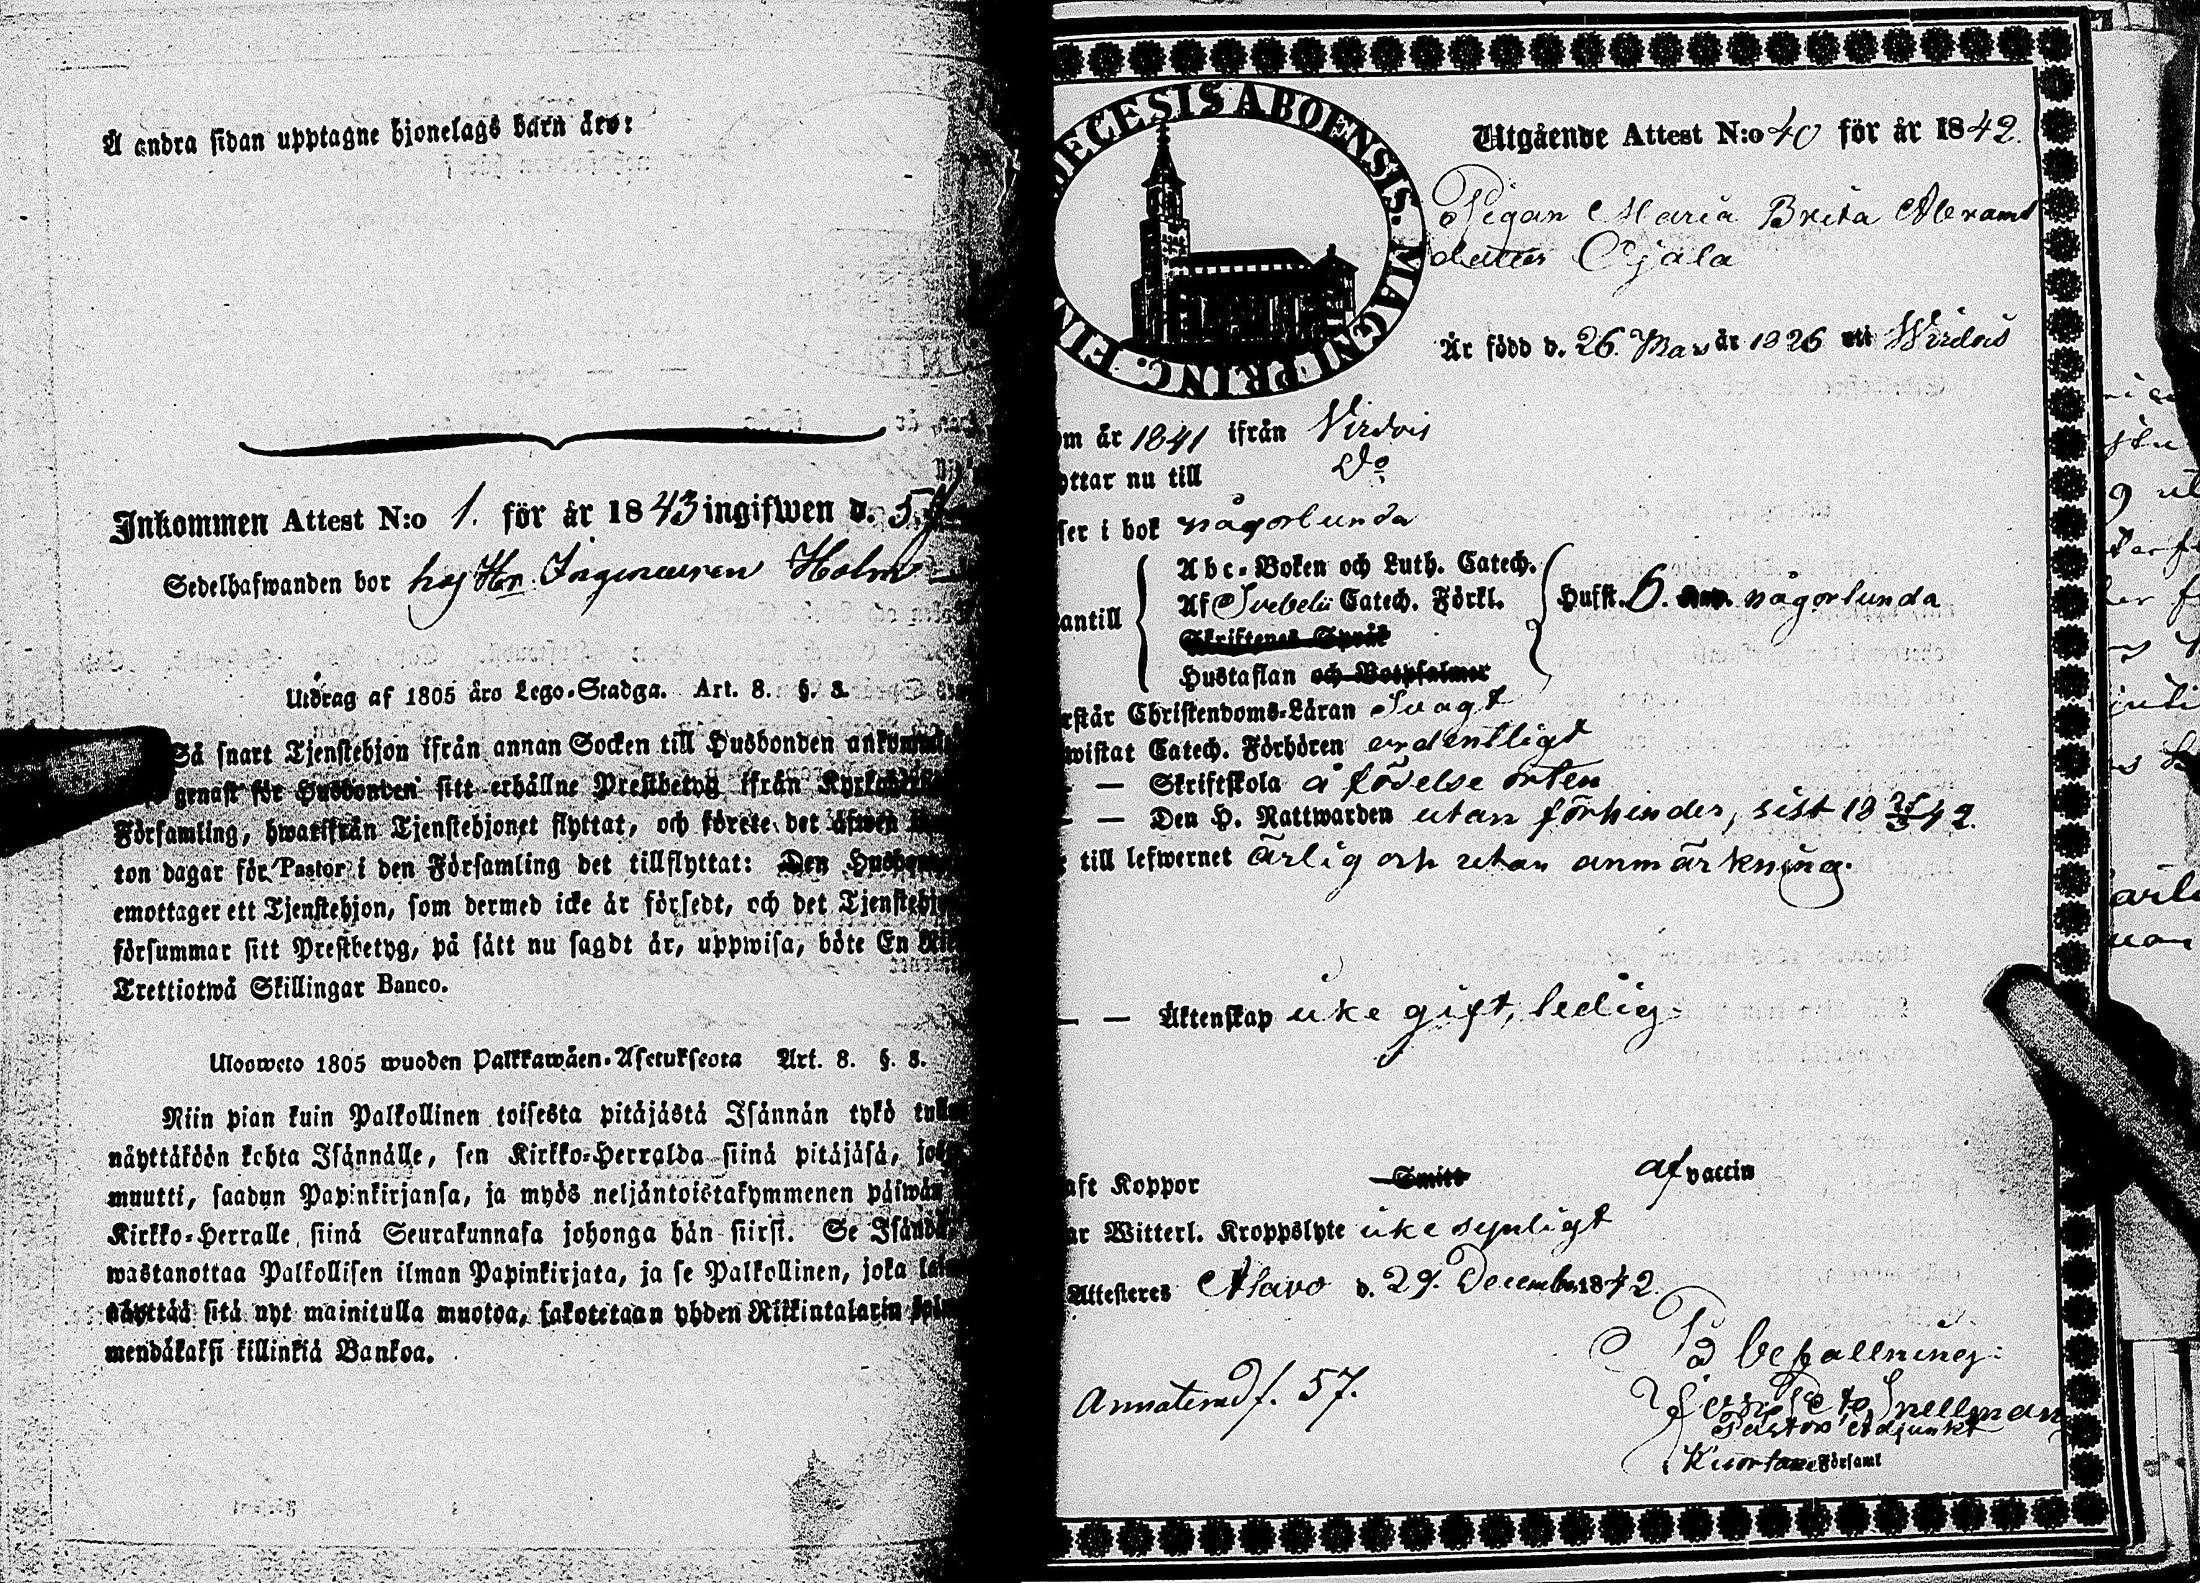 Å andra sidan upptagne hjonelags barn äro:
Inkommen Attest N:o 1. för år 1843 ingifwen d. 5
Sedelhafwanden bor hos Hr. Ingenieuren Holm
Utdrag af 1805 års Lego-Stadga. Art. 8. §. 8.
Så snart Tjenstehjon ifrån annan Socken till Husbonden
genast för Husbonden sitt erhållne Prestbetyg ifrån
Församling, hwarifrån Tjenstehjonet flyttat, och förete det äfwen
ton dagar för Pastor i den Församling det tillflyttat: Den
emottager ett Tjenstehjon, som dermed icke är försedt, och det
försummar sitt Prestbetyg, på sätt nu sagdt är, uppwisa, böte En
Trettiotwå Skillingar Banco.
Ulosweto 1805 wuoden Palkkawäen-Asetuksesta Art. 8. §. 8.
Niin pian kuin Palkollinen toisesta pitäjästä Isännän tykö
näyttäköön kohta Isännälle, sen Kirkko-Herralda siinä pitäjäsä,
muutti, saadun Papinkirjansa, ja myös neljäntoistakymmenen päiwän
Kirkko-Herralle siinä Seurakunnasa johonga hän siirsi. Se
wastanottaa Palkollisen ilman Papinkirjata, ja se Palkollinen, joka
näyttää sitä nyt mainitulla muotoa, sakotetaan yhden Rikkintalarin
mendäkaksi killinkiä Bankoa.
DECESIS ABOENSIS. MAGNI PRINC. FIN
Utgående Attest N:o 40 för år 1842.
Pigan Maria Brita Abrams
dotter Ojala
Är född d. 26. Mars år 1826 uti Wirdois
om år 1841 ifrån Virdois
ottar nu till Do
ser i bok någorlunda
Abc-Boken och Luth. Catech.
antill Af Svebelii Catech. Förkl. Hufst. 6. någorlunda
Skriftenes Språk
Hustaflan och Botpsalmer
rstår Christendoms-Läran Svagt
wistat Catech. Förhören ordentligt
— Skriftskola å födelse orten
— — Den H. Nattwarden utan förhinder, sist 18 42.
till lefwernet ärlig och utan anmärkning.
— — Äktenskap icke gift, ledig.
aft Koppor Smitt af vaccin
ar Witterl. Kroppslyte icke synligt
Attesteres Alavo d. 29. December 1842.
På befallning:
Annoterad f. 57.
Snellman
Pastors Adjunkt
Kuortane Församl